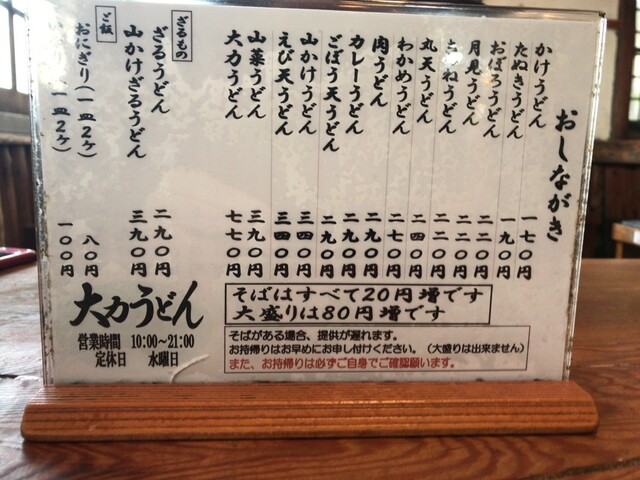 おしながき
かけうどん 一七〇円
たぬきうどん 一九〇円
おぼろうどん 二二〇円
月見うどん 二二〇円
きつねうどん 二二〇円
丸天うどん 二四〇円
わかめうどん 二七〇円
肉うどん 二九〇円
カレーうどん 二九〇円
ごぼう天うどん 二九〇円
山かけうどん 三四〇円
えび天うどん 三四〇円
山菜うどん 三九〇円
大力うどん 七七〇円
ざるもの
ざるうどん 二九〇円
山かけざるうどん 三九〇円
ご飯
おにぎり(一皿2ヶ) 八〇円
(一皿2ヶ) 一〇〇円
そばはすべて20円増です
大盛りは80円増です
大力うどん
営業時間 10:00~21:00
定休日 水曜日
そばがある場合、提供が遅れます。
お持帰りはお早めにお申し付けください。(大盛りは出来ません)
また、お持帰りは必ずご自身でご確認願います。